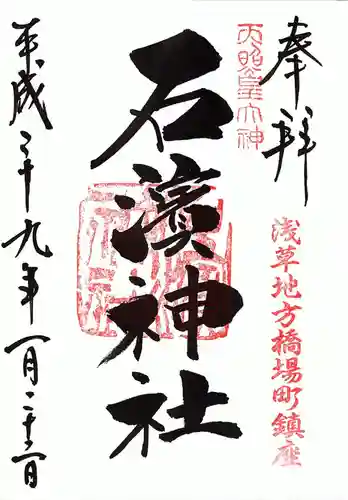 奉拝
天照皇大神
浅草地方橋場町鎮座
石濱神社
平成二十九年一月二十二日